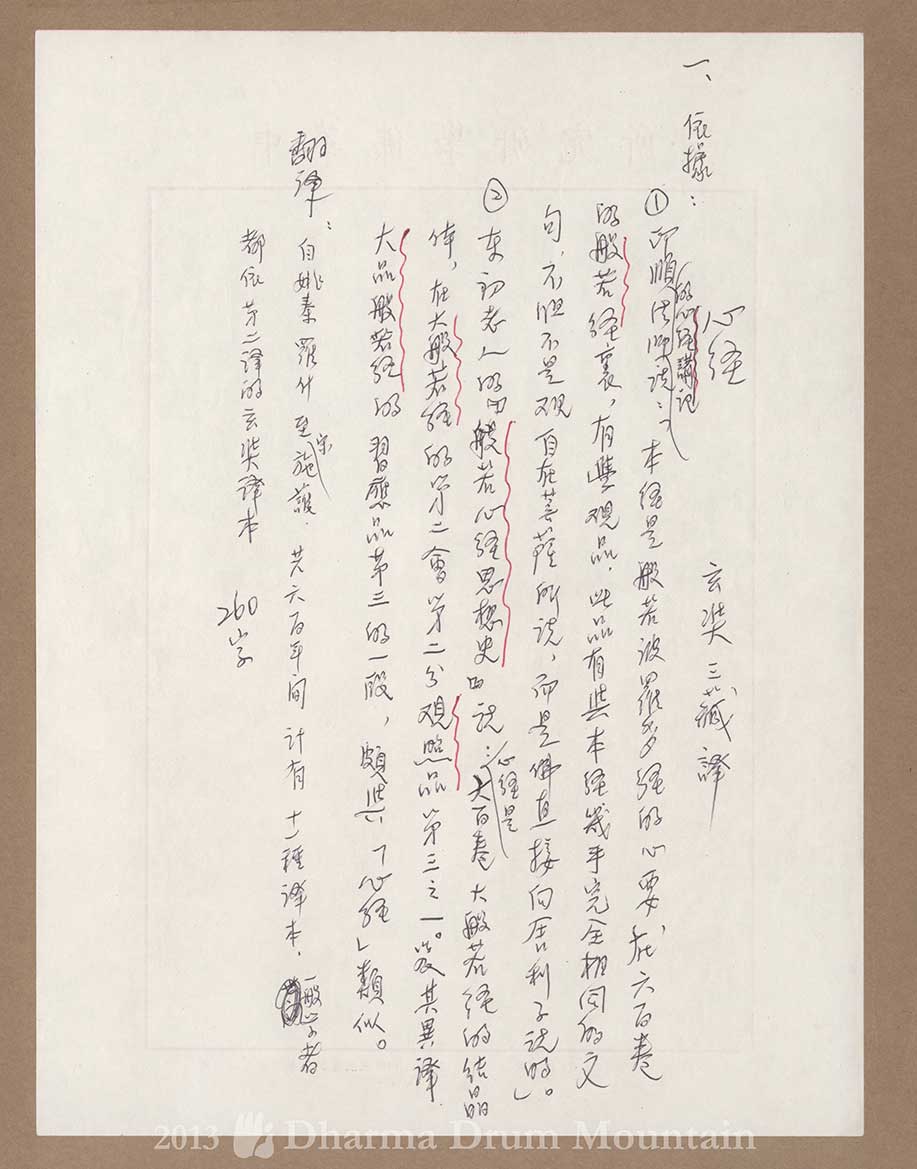 心経
玄奘三藏譯
一、依據：
①印順法師的心経講記說：「本経是般若波羅多経的心要，在六百卷
的般若経裏，有學觀品，此品有與本経幾乎完全相同的文
句，不但不是观自在菩薩所說，而是佛直接向舍利子説的」。
②東初老人的『般若心経思想史』説：心経是六百卷大般若経的结晶
体，在大般若経的第二會第二分观照品第三之一。及其異譯
大品般若経的習應品第三的一段，頗與「心経」類似。
翻译：自姚秦羅什至宋施護，共六百年间计有十一種译本，一般学者
都依第二譯的玄奘译本
260字
2013 Dharma Drum Mountain